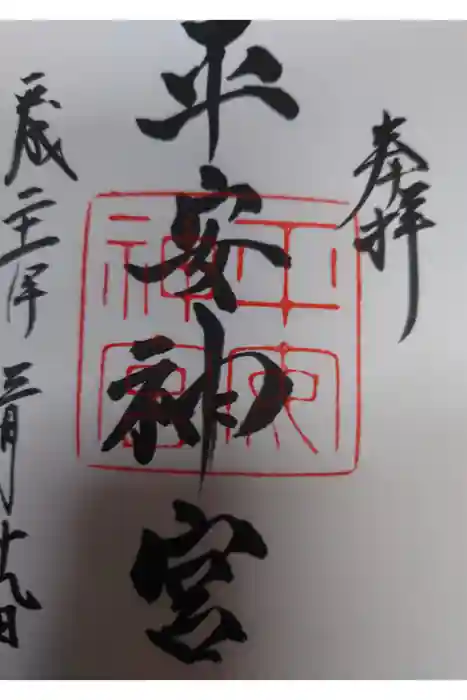 奉拝
平安神宮
平成二十 年 三月十九日
平安
神宮